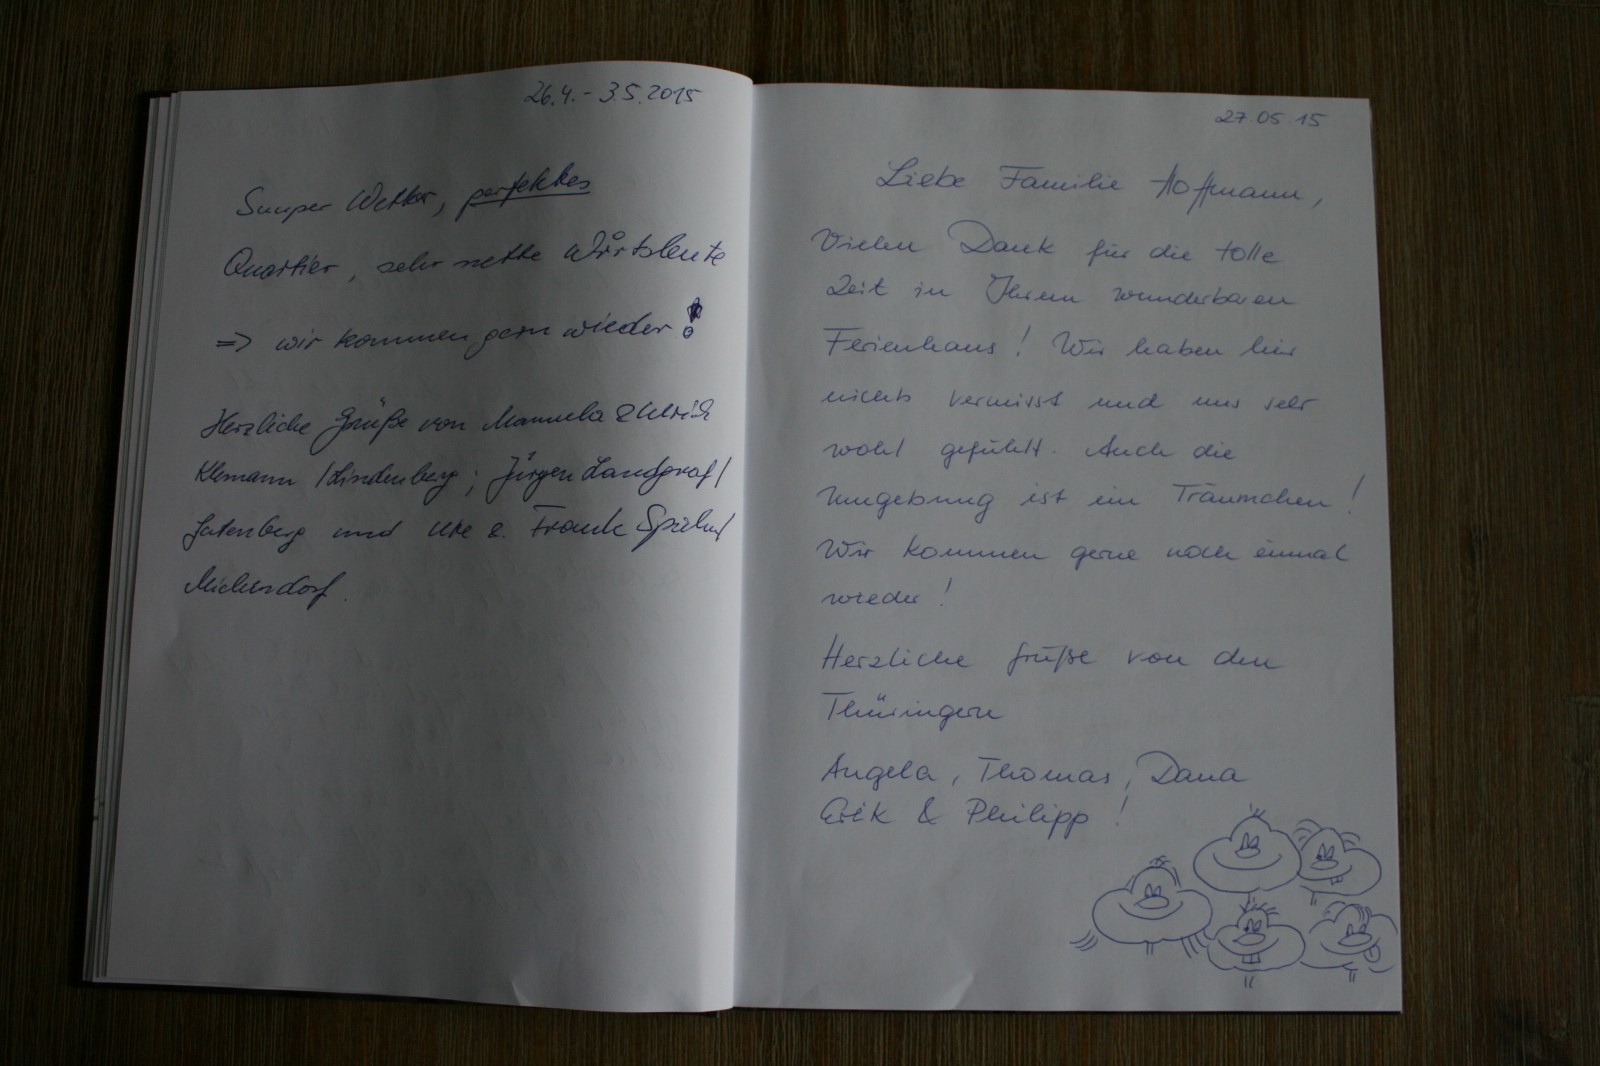 26.4. - 3.5.2015
Suuper Wetter, perfektes
Quartier, sehr nette Wirtsleute
=> wir kommen gern wieder!
Herzliche Grüße von Manuela & Ulrich
Klemann / Lindenberg; Jürgen Landgraf /
und Ute & Frank
27 05 15
Liebe Familie Hoffmann,
Vielen Dank für die tolle
Zeit in Ihrem wunderbaren
Ferienhaus! Wir haben hier
nichts vermisst und uns sehr
wohl gefühlt. Auch die
Umgebung ist ein Träumchen!
Wir kommen gerne noch einmal
wieder!
Herzliche Grüße von den
Thüringern
Angela, Thomas, Dana
Erik & Philipp!